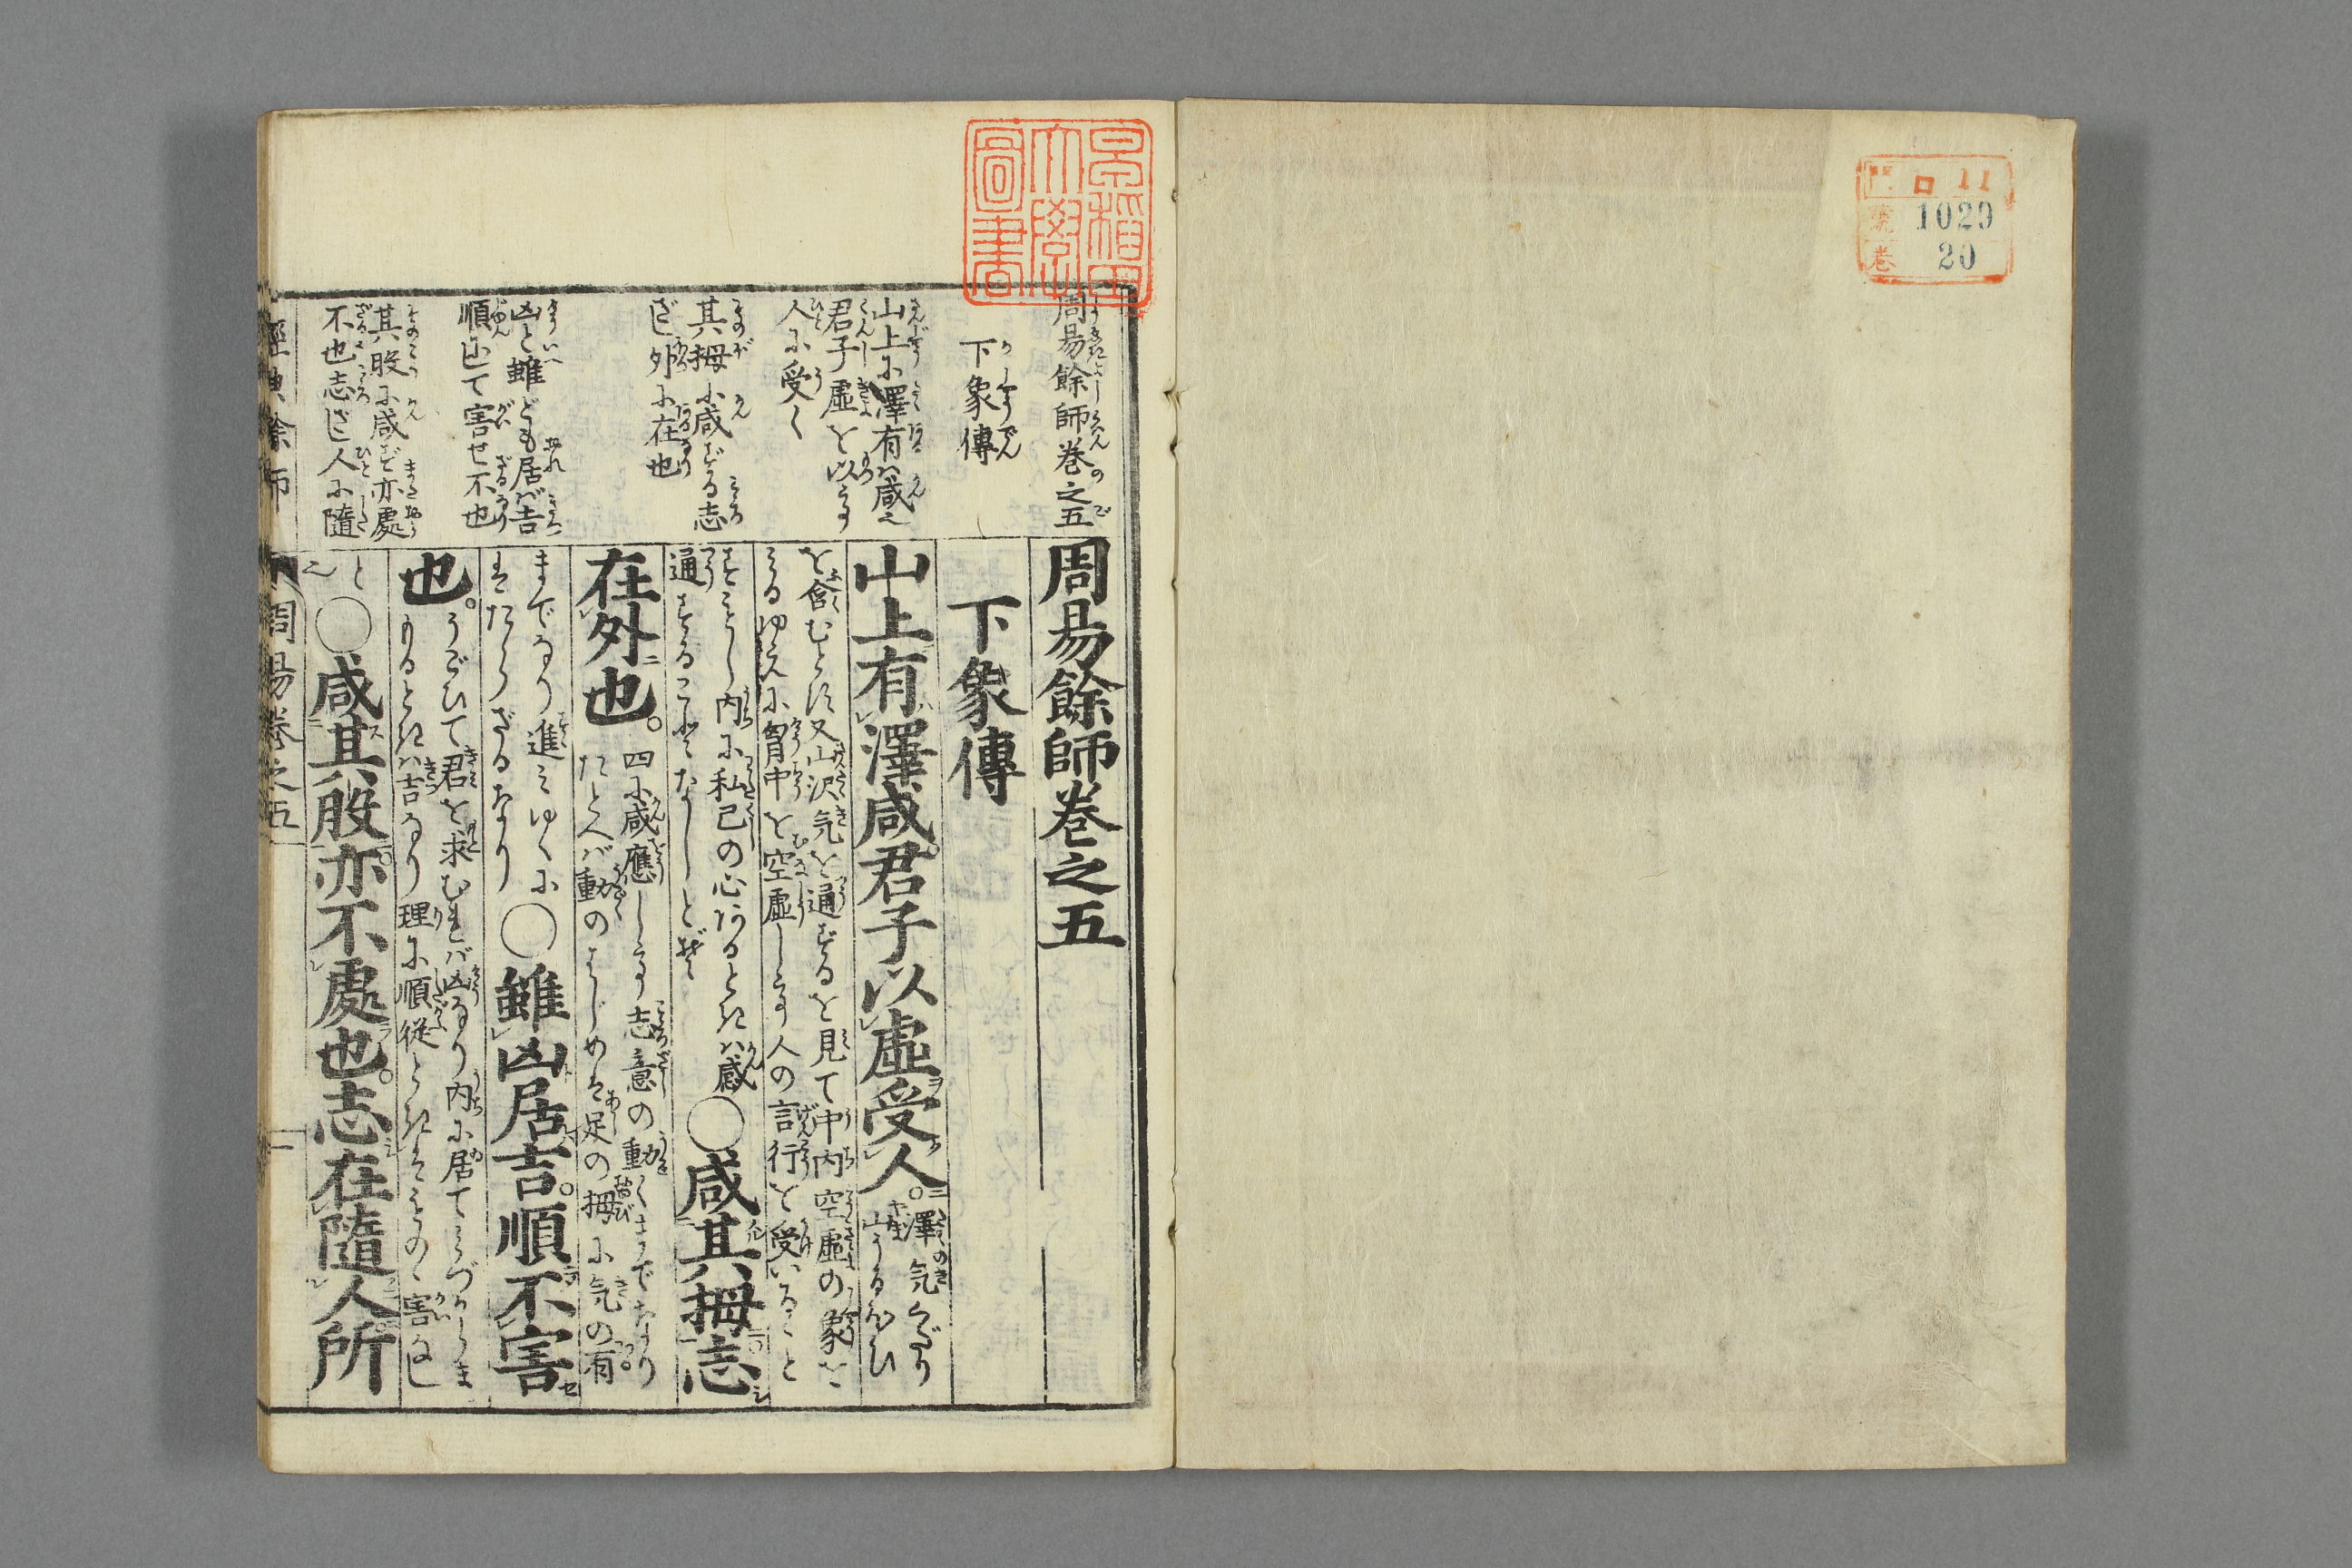 門 ロ 11
號 1029
巻 20
早稲田
大學
圖書
周易餘師巻之五
下象傳
山上に澤有ハ咸之
君子虚を以て
人に受く
其拇に咸ずる志
外に在也
凶と雖ども居バ吉
順にして害せ不也
其股に咸ず亦處
不也志人に隨
周易餘師巻之五
下象傳
山上有澤咸。君子以虚受人。澤気くだり
山うるほひ
を含むとき又山沢気を通ずるを見て中内空虚の象を
みるゆへに胷中を空虚しうして人の言行を受いるゝと
すことし内に私己の心あるときハ感
通することなしとぞ
○咸其拇志
在外也。四に咸應しうて志意の動くまでなり
たとへバ動のはじめは足の拇に気の有
までなり進みゆくに
はたらざるなり
○雖凶居吉。順不害
也。うごひて君を求むれバ凶なり内に居てみづからま
もるときハ吉なり理に順従ときはその害なし
と
○咸其股。亦不處也。志在隨人。所
經典餘師 周易巻之五 一